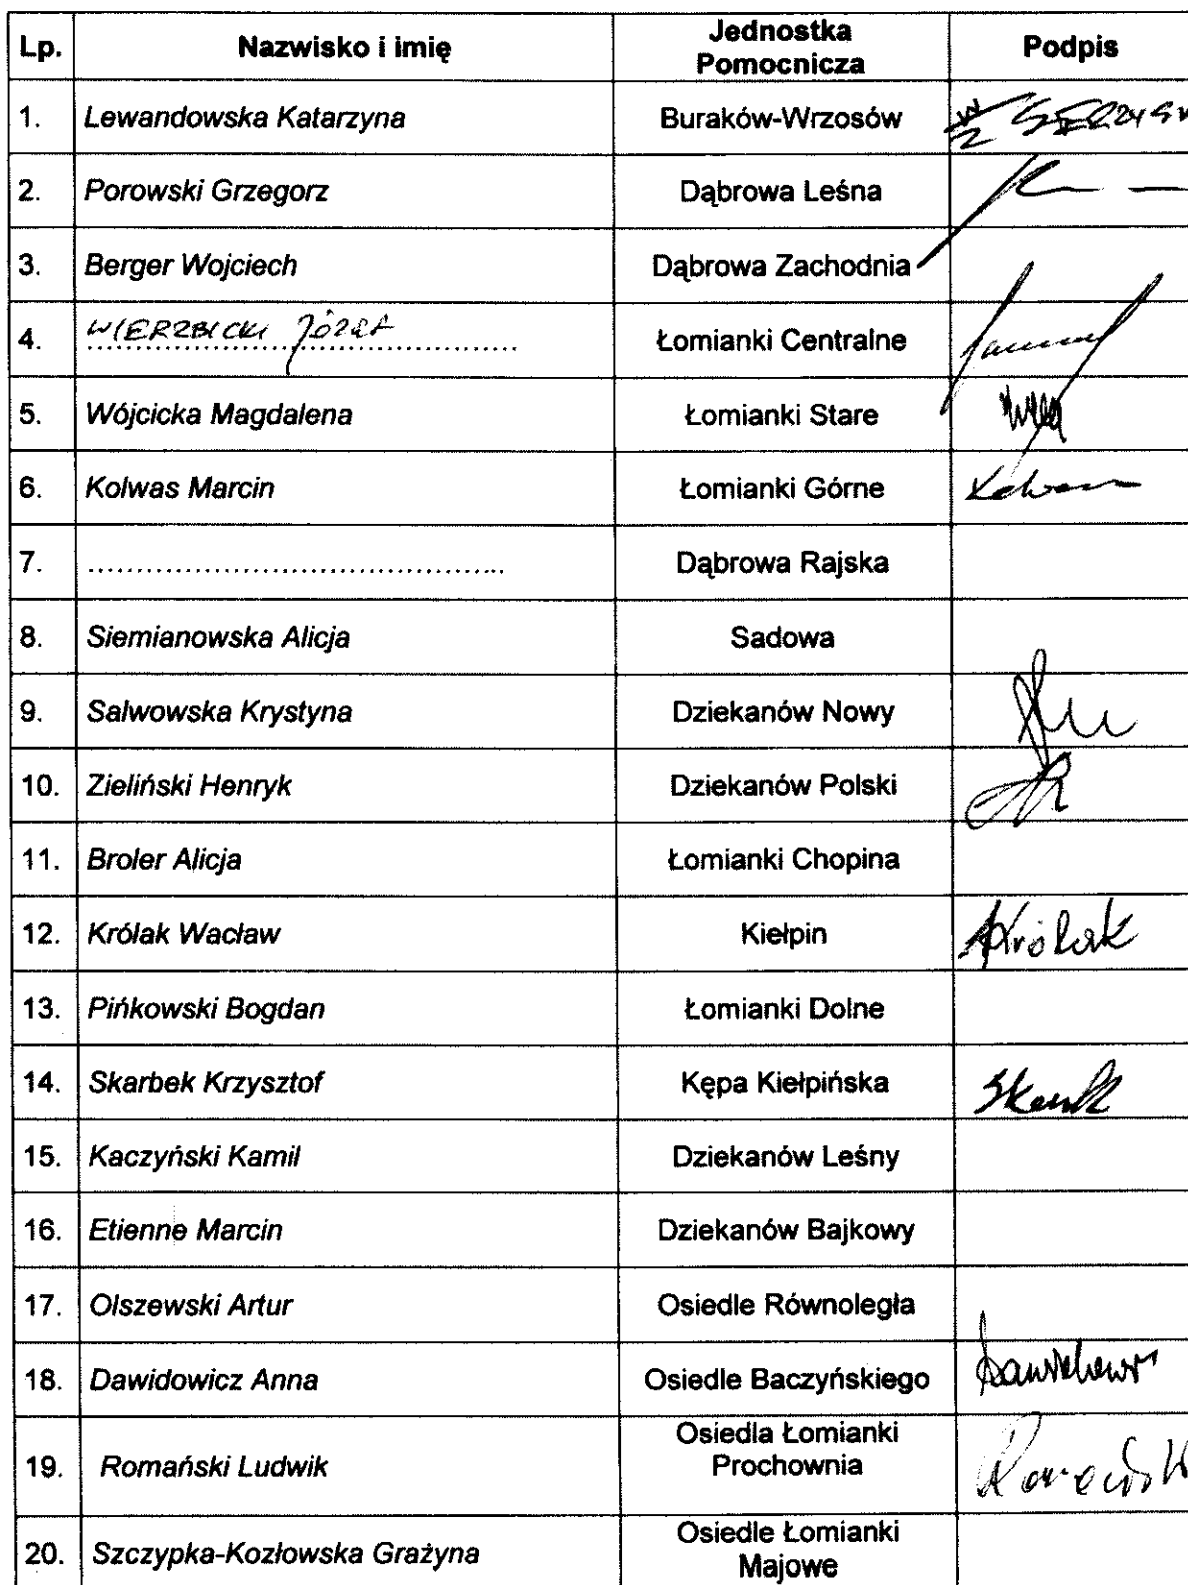 Lp. Nazwisko i imię Jednostka Pomocnicza Podpis
1. Lewandowska Katarzyna Buraków-Wrzosów
2. Porowski Grzegorz Dąbrowa Leśna
3. Berger Wojciech Dąbrowa Zachodnia
4. WIERZBICKI JÓZEF Łomianki Centralne
5. Wójcicka Magdalena Łomianki Stare
6. Kolwas Marcin Łomianki Górne
7. .......................................... Dąbrowa Rajska
8. Siemianowska Alicja Sadowa
9. Salwowska Krystyna Dziekanów Nowy
10. Zieliński Henryk Dziekanów Polski
11. Broler Alicja Łomianki Chopina
12. Królak Wacław Kiełpin AKrólak
13. Pińkowski Bogdan Łomianki Dolne
14. Skarbek Krzysztof Kępa Kiełpińska
15. Kaczyński Kamil Dziekanów Leśny
16. Etienne Marcin Dziekanów Bajkowy
17. Olszewski Artur Osiedle Równoległa
18. Dawidowicz Anna Osiedle Baczyńskiego
19. Romański Ludwik Osiedla Łomianki Prochownia
20. Szczypka-Kozłowska Grażyna Osiedle Łomianki Majowe